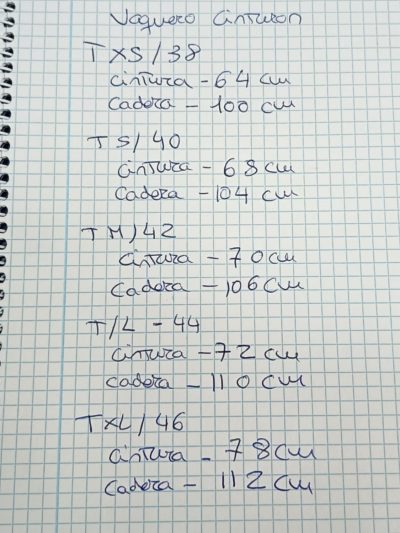 Vaquero Cinturon
TXS/38
cintura - 64 cm
cadera - 100 cm
TS/40
cintura - 68 cm
cadera - 104 cm
TM/42
cintura - 70 cm
cadera - 106 cm
T/L - 44
cintura - 72 cm
cadera - 110 cm
TXL/46
cintura - 78 cm
cadera - 112 cm